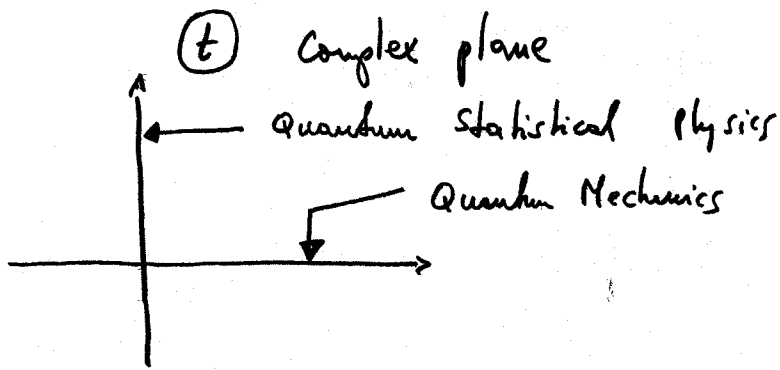 t Complex plane
Quantum Statistical Physics
Quantum Mechanics